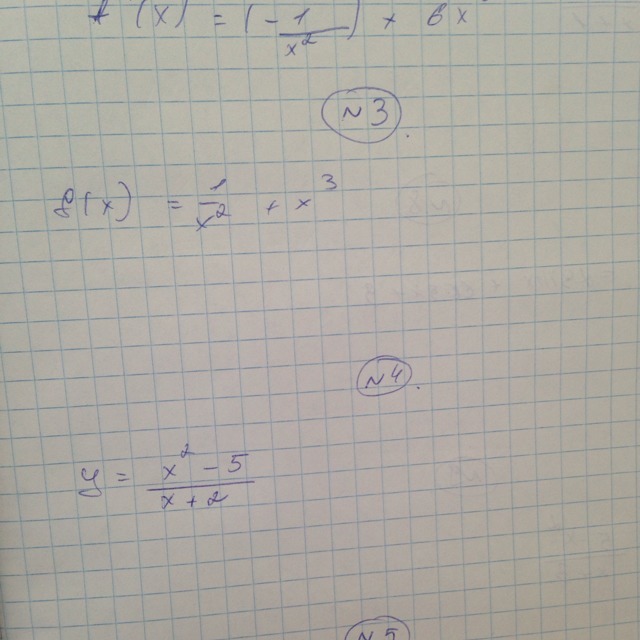 f'(x) = (-1/x²) + 6x
№3.
f(x) = 1/x² + x³
№4.
y = (x² - 5)/(x + 2)
№5